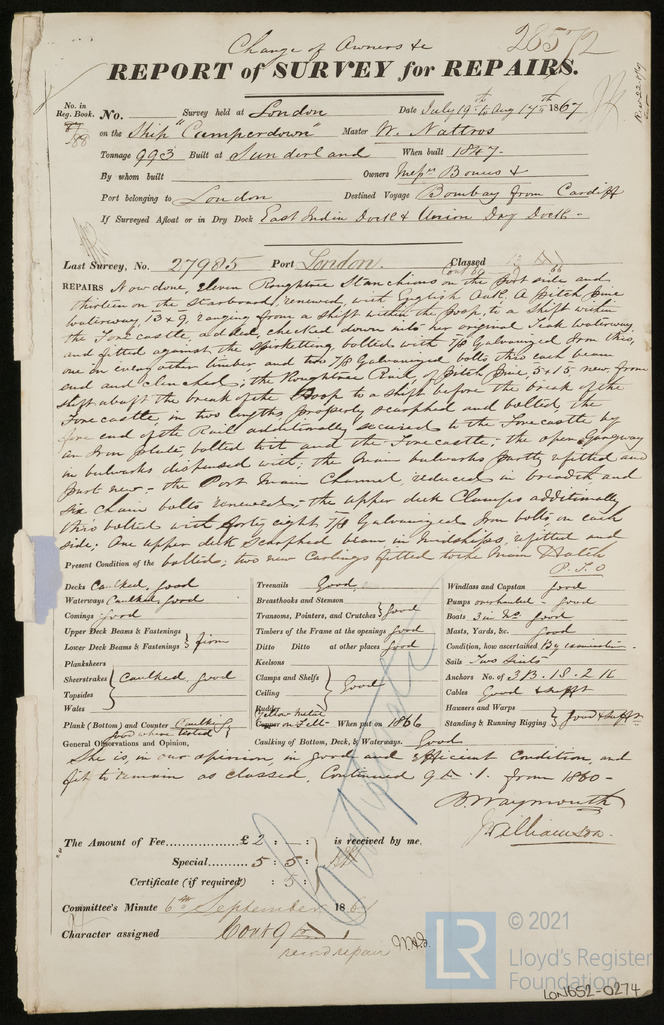 Change of Owners &c
28572
REPORT of SURVEY for REPAIRS.
No. in Reg. Book. No. Survey held at London Date July 19th to Aug 17th 1867
88 on the Ship "Camperdown" Master W. Nattros
Tonnage 993 Built at Sunderland When built 1847
By whom built Owners Messrs Bonus &
Port belonging to London Destined Voyage Bombay from Cardiff
If Surveyed Afloat or in Dry Dock East India Dock & Union Dry Dock
Last Survey, No. 27985 Port London. Classed
REPAIRS Now done, Eleven Roughtree Stanchions on the Port side and
thirteen on the Starboard, renewed, with English Oak. A Pitch Pine
waterway 13 x 9, ranging from a shift within the Poop, to a shift within
the Forecastle, added, checked down into her original Teak waterway
and fitted against the Spirketting bolted with 7/8 Galvanized Iron thro,
one in every other timber and two 7/8 Galvanized bolts thro each beam
end and clenched; the Roughtree Rail, of Pitch Pine, 5 x 15, new, from
shift abaft the break of the Poop to a shift before the break of the
Forecastle, in two lengths properly scarphed and bolted, the
fore end of the Rail additionally secured to the Forecastle by
an Iron plate, bolted to it and the Forecastle; the open Gangway
in bulwarks dispensed with; the Main bulwarks partly refitted and
part new - the Port Main Channel, reduced in breadth and
six Chain bolts renewed; the upper deck Clamps additionally
thro bolted with forty eight 7/8 Galvanized Iron bolts, on each
side; One upper deck Scarphed beam in Midships, refitted and
bolted; two new Carlings fitted to the Main Hatch
P.T.O
Present Condition of the
Decks Caulked, Good Treenails Good Windlass and Capstan Good
Waterways Caulked, Good Breasthooks and Stemson Pumps overhauled - Good
Comings Good Transoms, Pointers, and Crutches Good Boats 3 in No Good
Upper Deck Beams & Fastenings Timbers of the Frame at the openings Good Masts, Yards, &c. Good
Lower Deck Beams & Fastenings firm Ditto Ditto at other places Good Condition, how ascertained By examination
Planksheers Keelsons Sails Two Suits
Sheerstrakes Caulked, Good Clamps and Shelfs Good Anchors No. of 3 B. 1 S. 2 K
Topsides Ceiling Cables Good & sufft
Wales Rudder Hausers and Warps
Plank (Bottom) and Counter Caulking good where tested Yellow Metal Copper on Felt When put on 1866 Standing & Running Rigging Good & sufft
General Observations and Opinion, Caulking of Bottom, Deck, & Waterways. Good
She is, in our opinion, in good and efficient Condition, and
fit to remain as classed, Continued 9 A.1. from 1860 -
B. Waymouth
J Williamson.
The Amount of Fee £ 2 : : is received by me,
Special 5 : 5 :
Certificate (if required) : 5 :
Committee's Minute 6th September 1867
Character assigned Cont 9 A 1
record repair
© 2021
LR Lloyd's Register
Foundation
LON652-0274